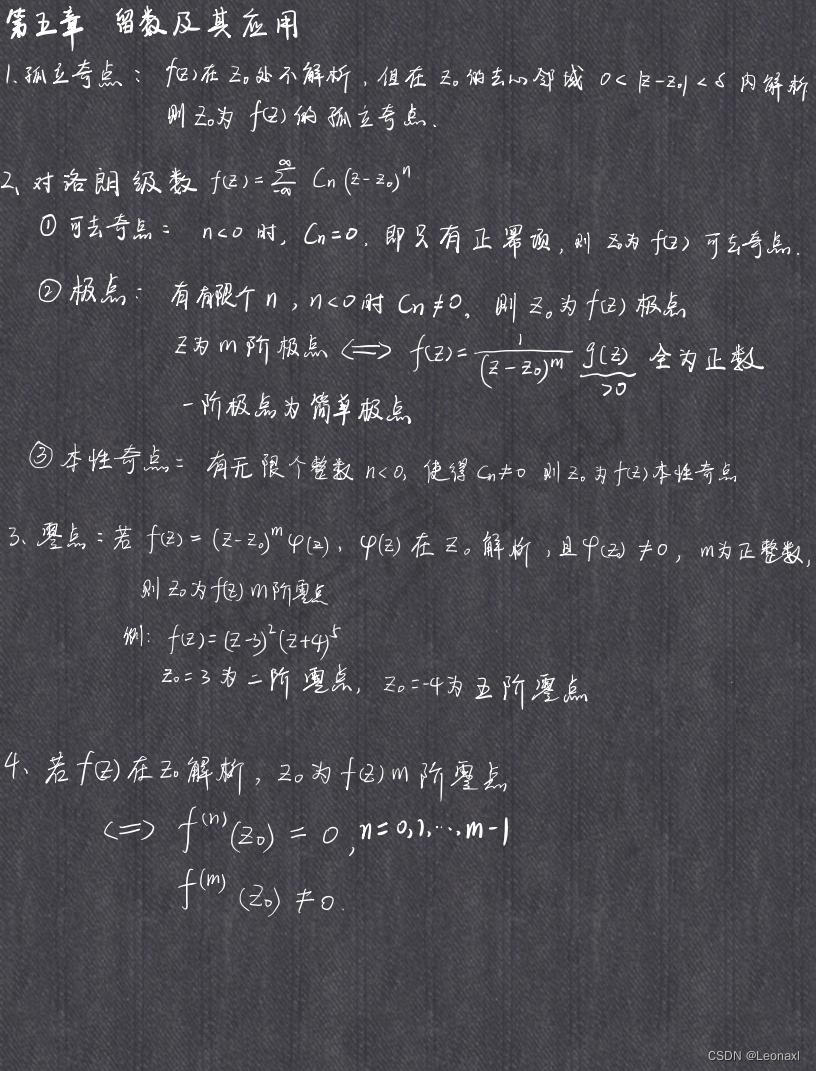 第五章 留数及其应用
1. 孤立奇点： f(z)在z₀处不解析，但在z₀的去心邻域 0<|z-z₀|<δ 内解析
则z₀为 f(z)的孤立奇点.
2、对洛朗级数 f(z)=∑_{-∞}^{∞} Cₙ(z-z₀)ⁿ
① 可去奇点： n<0 时，Cₙ=0，即只有正幂项，则 z₀为 f(z) 可去奇点.
② 极点： 有有限个 n，n<0时 Cₙ≠0， 则 z₀为 f(z) 极点
z为 m 阶极点 <=> f(z)=1/(z-z₀)ᵐ g(z) 全为正数
>0
一阶极点为简单极点
③ 本性奇点： 有无限个整数 n<0，使得Cₙ≠0 则 z₀为 f(z)本性奇点
3、零点：若 f(z)=(z-z₀)ᵐφ(z)、φ(z) 在 z₀ 解析，且φ(z₀)≠0，m为正整数，
则 z₀为f(z) m阶零点
例： f(z)=(z-3)²(z+4)⁵
z₀=3 为二阶零点，z₀=-4为五阶零点
4、若 f(z)在z₀解析，z₀为 f(z) m 阶零点
<=> f⁽ⁿ⁾(z₀) = 0，n=0,1,…,m-1
f⁽ᵐ⁾(z₀) ≠0.
CSDN @Leonaxl